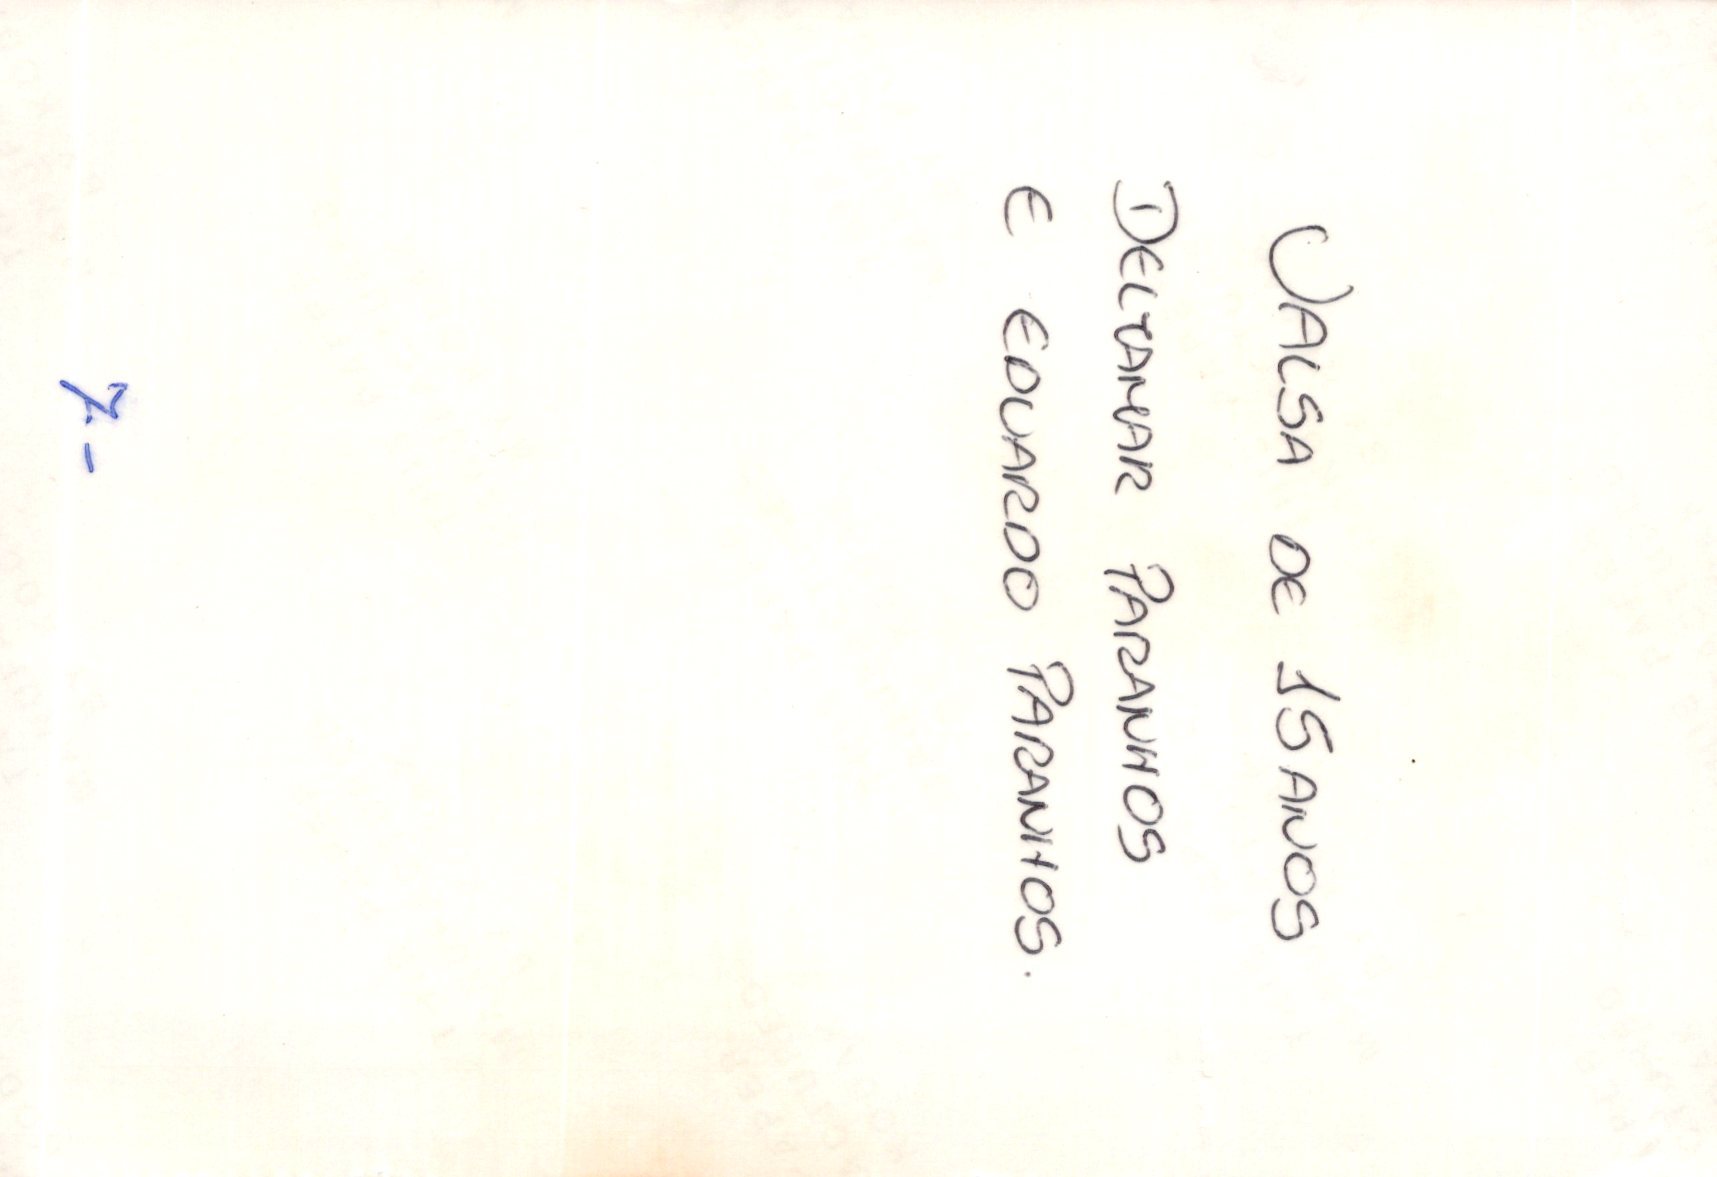 VALSA DE 15 ANOS
DELTAMAR PARANHOS
E EDUARDO PARANHOS.